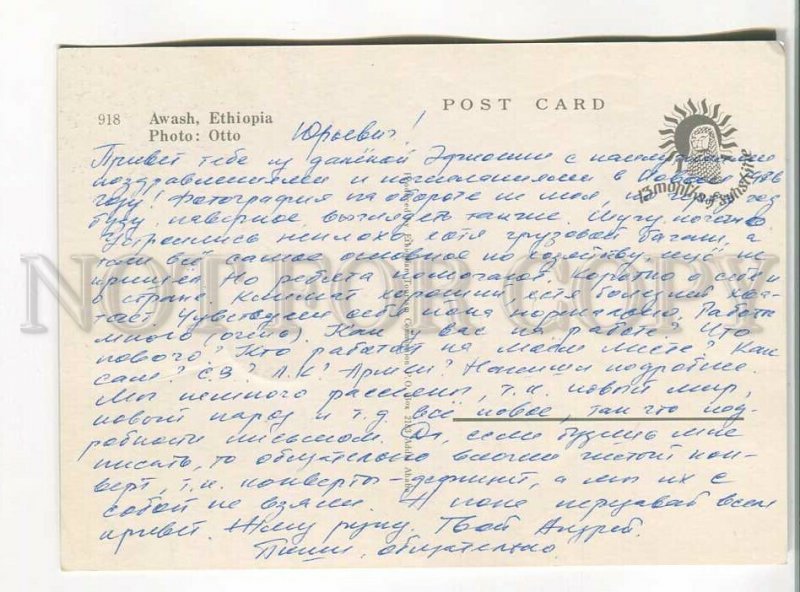 POST CARD
918 Awash, Ethiopia
Photo: Otto
13 months of sunshine
Юрьевич!
Привет тебе из далёкой Эфиопии с
поздравлениями и пожеланиями в Новом
году! Фотография на обороте не моя, но
буду, наверное, выглядеть также. Шучу, конечно
Устроились неплохо, хотя грузовой багаж, а
там всё самое основное по хозяйству, ещё не
пришёл. Но ребята помогают. Коротко о себе и
о стране. Климат хороший, хотя болезней хва-
тает. Чувствуем себя пока нормально. Работы
много (очень). Как у вас на работе? Что
нового? Кто работает на моём месте? Как
сам? С.В.? Л.К.? Напиши подробнее.
Мы немного рассеяны, т.к. новый мир,
новый народ и т.д. всё новое, так что под-
робности письмом. Да, если будешь мне
писать, то обязательно вложи чистый кон-
верт, т.к. конверты - дефицит, а мы их с
собой не взяли. А пока передавай всем
привет. Жму руку. Твой Андрей.
Пиши, обязательно
NOT FOR COPY